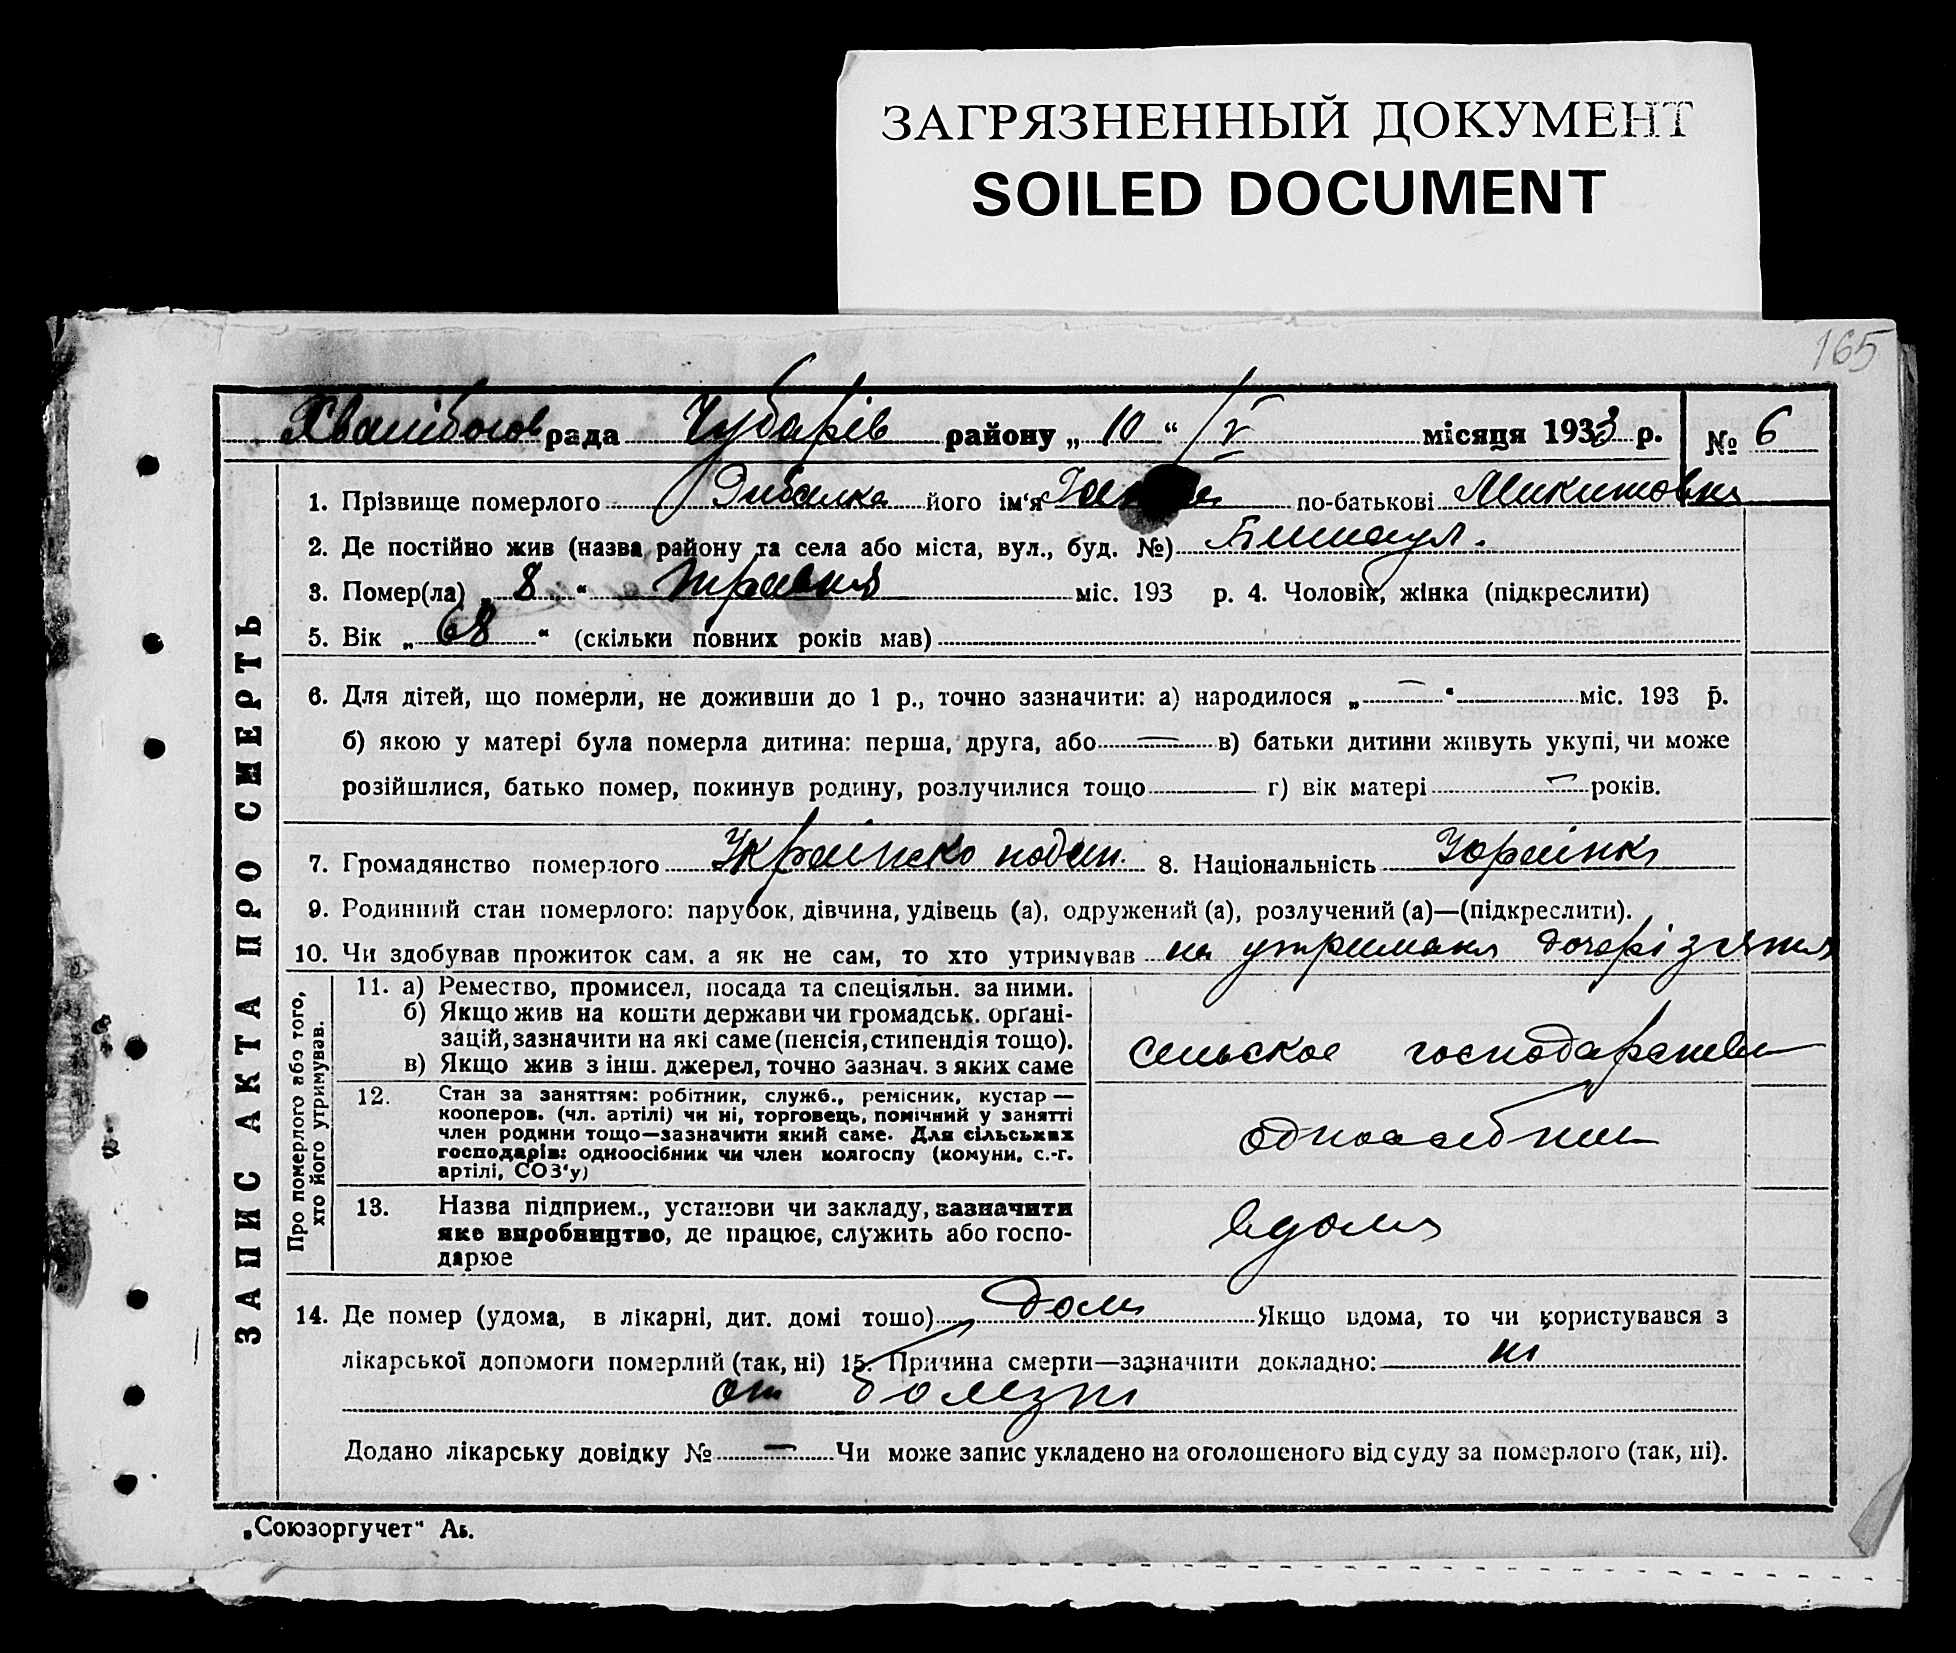 ЗАГРЯЗНЕННЫЙ ДОКУМЕНТ
SOILED DOCUMENT
165
рада Чубарів району „ 10 “ / V місяця 1933 р. № 6
ЗАПИС АКТА ПРО СМЕРТЬ
1. Прізвище померлого Рибалка його ім‘я по-батькові Микитовна
2. Де постійно жив (назва району та села або міста, вул., буд. №)
3. Помер(ла) „ 8 “ травня міс. 193 р. 4. Чоловік, жінка (підкреслити)
5. Вік „ 68 “ (скільки повних років мав)
6. Для дітей, що померли, не доживши до 1 р., точно зазначити: а) народилося „ — “ міс. 193 р.
б) якою у матері була померла дитина: перша, друга, або — в) батьки дитини живуть укупі, чи може
розійшлися, батько помер, покинув родину, розлучилися тощо г) вік матері — років.
7. Громадянство померлого 8. Національність
9. Родинний стан померлого: парубок, дівчина, удівець (а), одружений (а), розлучений (а)—(підкреслити).
10. Чи здобував прожиток сам, а як не сам, то хто утримував на утриманя дочері зятя
Про померлого або того,
хто його утримував.
11. а) Ремество, промисел, посада та спеціяльн. за ними.
б) Якщо жив на кошти держави чи громадськ. органі-
зацій, зазначити на які саме (пенсія, стипендія тощо).
в) Якщо жив з інш. джерел, точно зазнач. з яких саме
сельское господарство
12. Стан за заняттям: робітник, служб., ремісник, кустар —
кооперов. (чл. артілі) чи ні, торговець, помічний у занятті
член родини тощо—зазначити який саме. Для сільських
господарів: одноосібник чи член колгоспу (комуни, с.-г.
артілі, СОЗ‘у)
13. Назва підприєм., установи чи закладу, зазначити
яке виробництво, де працює, служить або госпо-
дарює
вдома
14. Де помер (удома, в лікарні, дит. домі тощо) дома Якщо вдома, то чи користувався з
лікарської допомоги померлий (так, ні) 15. Причина смерти—зазначити докладно: ні
от болезні
Додано лікарську довідку № — Чи може запис укладено на оголошеного від суду за померлого (так, ні).
„Союзоргучет“ Ай.